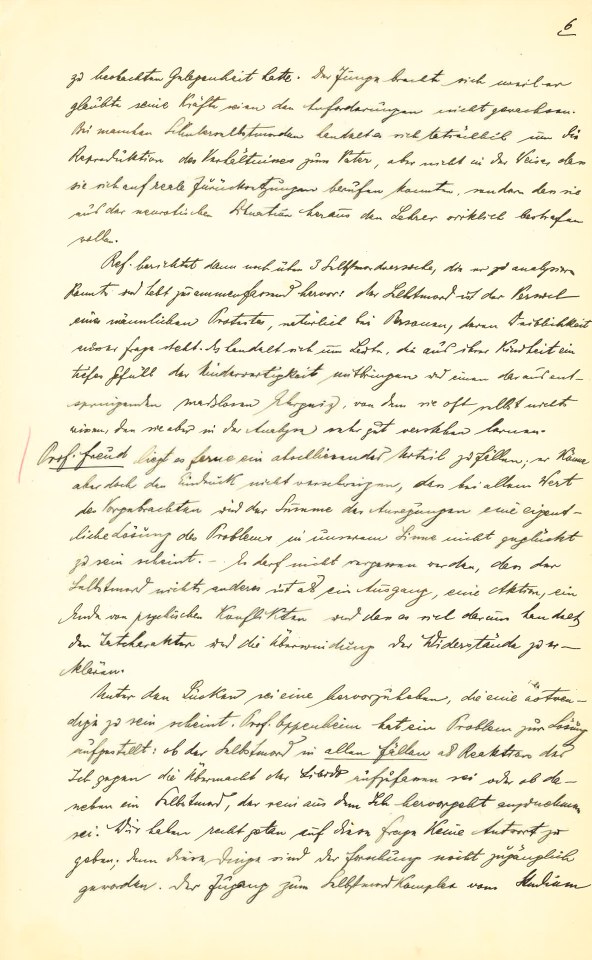 6
zu beobachten Gelegenheit hatte. Der Junge bracht sich weil er
glaubte seine Kräfte seien den Anforderungen nicht gewachsen.
Bei manchen Schülerselbstmorden handelt es sich tatsächlich um die
Reproduktion des Verhältnisses zum Vater, aber nicht in der Weise dass
sie sich auf reale Zurücksetzungen berufen konnten, sondern dass sie
aus der neurotischen Situation heraus den Lehrer wirklich bestrafen
wollen.
Ref. berichtet dann noch über 3 Selbstmordversuche, die er zu analysieren
Konnte und hebt zusammenfassend hervor: der Selbstmord ist der
eines männlichen Protestes, natürlich bei Personen, deren Weiblichkeit
ausser Frage steht. Es handelt sich um Leute, die aus ihrer Kindheit ein
tiefes Gefühl der Minderwertigkeit mitbringen und einen daraus ent-
springenden masslosen Ehrgeiz, von dem sie oft selbst nichts
wissen, den sie aber in der Analyse sehr gut verstehen lernen.
Prof. Freud liegt es ferne ein abschliessendes Urteil zu fällen; er Könne
aber doch den Eindruck nicht verschweigen, dass bei allem Wert
des Vorgebrachten und der Summe der Anregungen eine eigent-
liche Lösung des Problems in unserem Sinne nicht geglückt
zu sein scheint. – Es darf nicht vergessen werden, dass der
Selbstmord nichts anderes ist als ein Ausgang, eine Aktion, ein
Ende von psychischen Konflikten und dass es sich darum handelt,
den Tatcharakter und die Überwindung der Widerstände zu er-
klären.
Unter den Lücken sei eine hervorzuheben, die eine notwen-
dige zu sein scheint. Prof. Oppenheim hat ein Problem zur Lösung
aufgestellt: ob der Selbstmord in allen Fällen als Reaktion des
Ich gegen die Übermacht der Libido aufzufassen sei oder ob da-
neben ein Selbstmord, der rein aus dem Ich hervorgeht anzunehmen
sei. Wir haben recht getan auf diese Frage Keine Antwort zu
geben; denn diese Dinge sind der Forschung nicht zugänglich
geworden. Der Zugang zum Selbstmord Komplex vom Studium